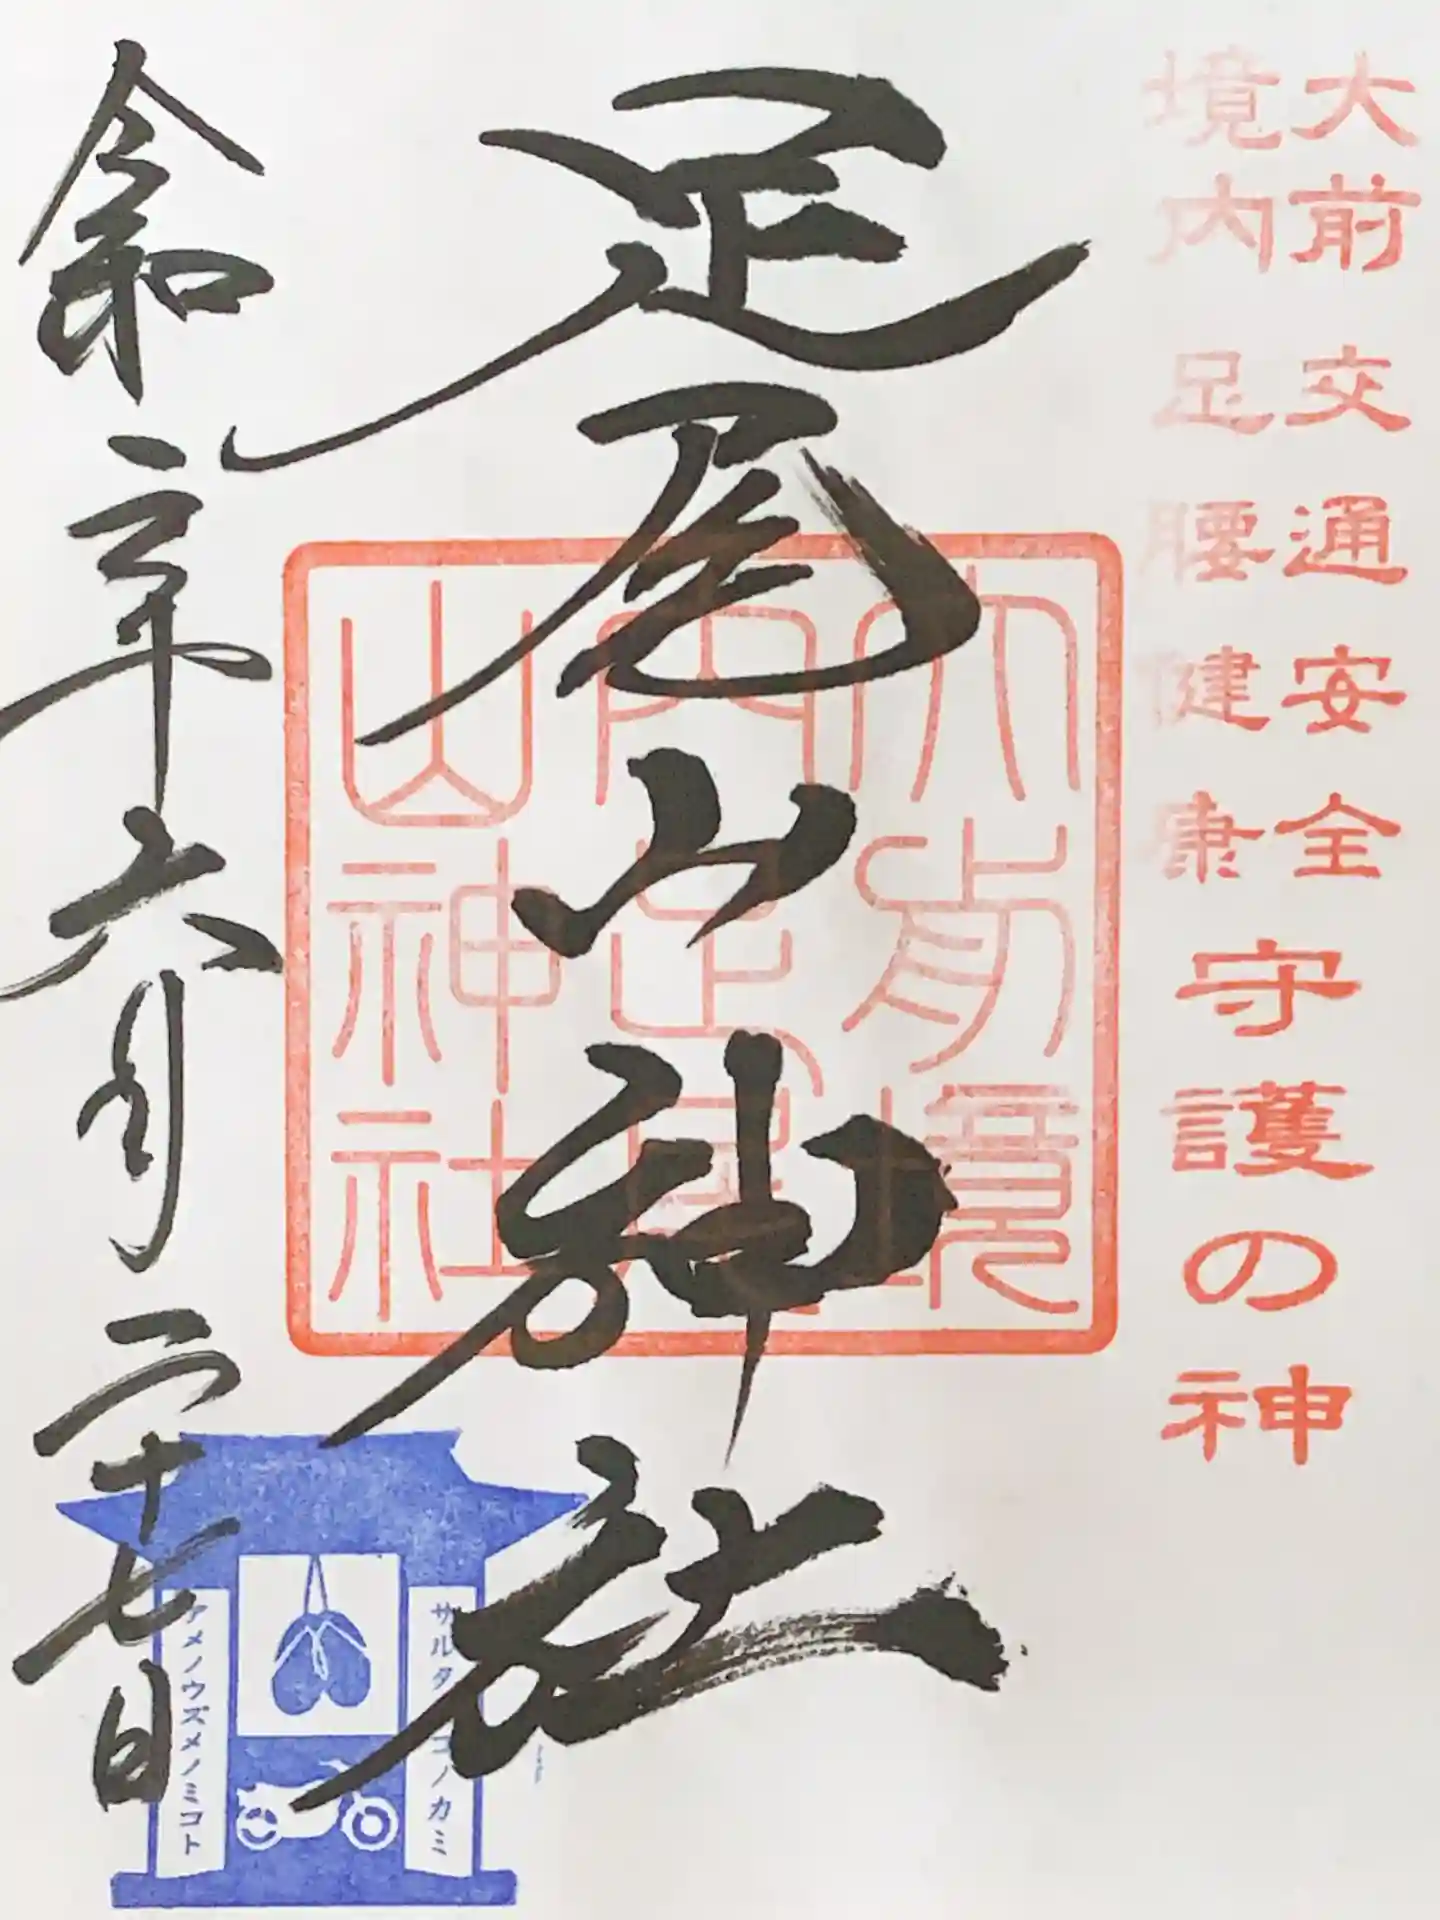 大前 交通安全
境内 足腰健康
守護の神
足尾山神社
大前境
内足尾
山神社
令和二年六月二十七日
サルタヒコノカミ
アメノウズメノミコト